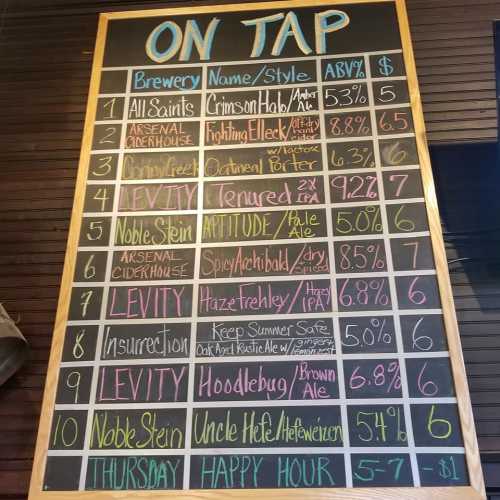 ON TAP
Brewery Name/Style ABV% $
1 All Saints Crimson Halo/Amber Ale 5.3% 5
2 ARSENAL CIDERHOUSE Fighting Elleck/off-dry hard cider 8.8% 6.5
3 Creek Oatmeal Porter w/lactose 6.3% 6
4 LEVITY Tenured 2X IPA 9.2% 7
5 Noble Stein APTITUDE/Pale Ale 5.0% 6
6 ARSENAL CIDERHOUSE Spicy Archibald/dry spiced 8.5% 7
7 LEVITY Haze Frehley/Hazy IPA 6.8% 6
8 Insurrection Keep Summer Safe Oak Aged Rustic Ale w/ginger+ lemon zest 5.0% 6
9 LEVITY Hoodlebug/Brown Ale 6.8% 6
10 Noble Stein Uncle Hefe/Hefeweizen 5.4% 6
THURSDAY HAPPY HOUR 5-7 -$1